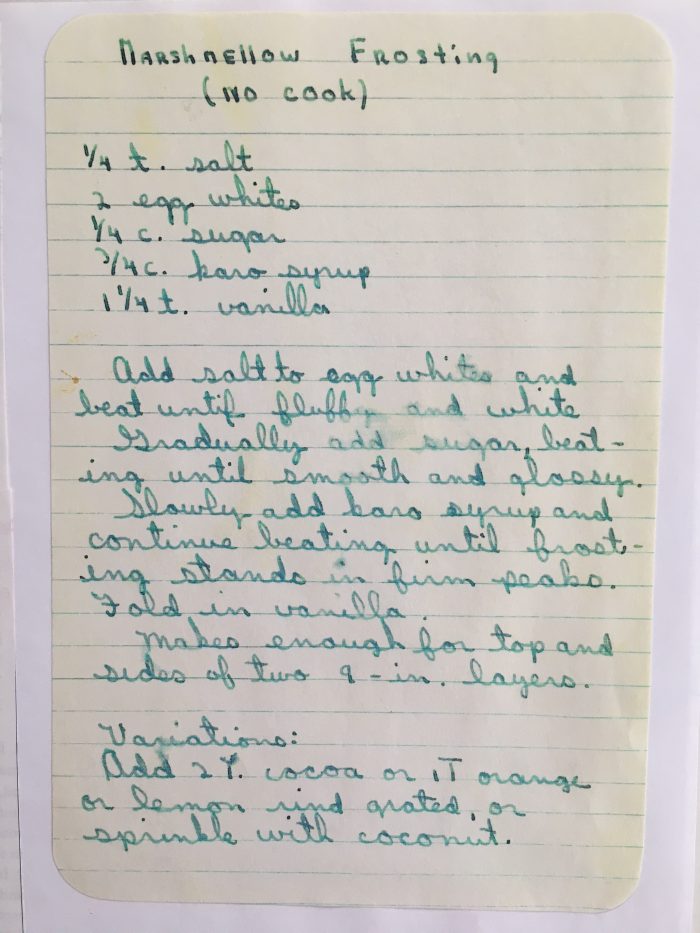 Marshmellow Frosting
(No Cook)
1/4 t. salt
2 egg whites
1/4 c. sugar
3/4 c. karo syrup
1 1/4 t. vanilla
Add salt to egg whites and
beat until fluffy and white
Gradually add sugar, beat-
ing until smooth and glossy.
Slowly add karo syrup and
continue beating until frost-
ing stands in firm peaks.
Fold in vanilla.
Makes enough for top and
sides of two 9-in. layers.
Variations:
Add 2 T. cocoa or 1T orange
or lemon rind grated, or
sprinkle with coconut.